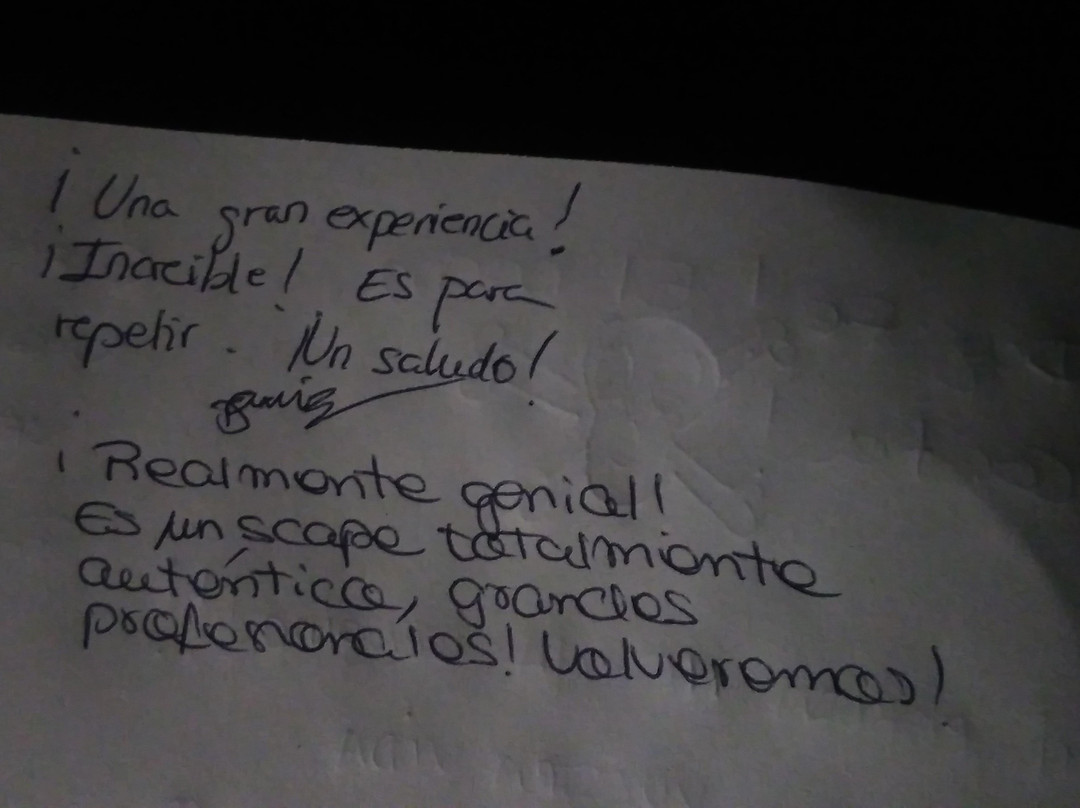 ¡Una gran experiencia!
¡Increible! Es para
repetir. ¡Un saludo!
¡Realmente genial!
Es un scape totalmente
auténtico, grandes
profesionales! Volveremos!